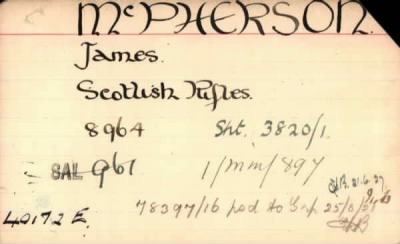 McPHERSON.
James.
Scottish Rifles.
8964 Sht. 3820/1.
SAL 961 1/MM/897
40172E. 78397/16 25/8/